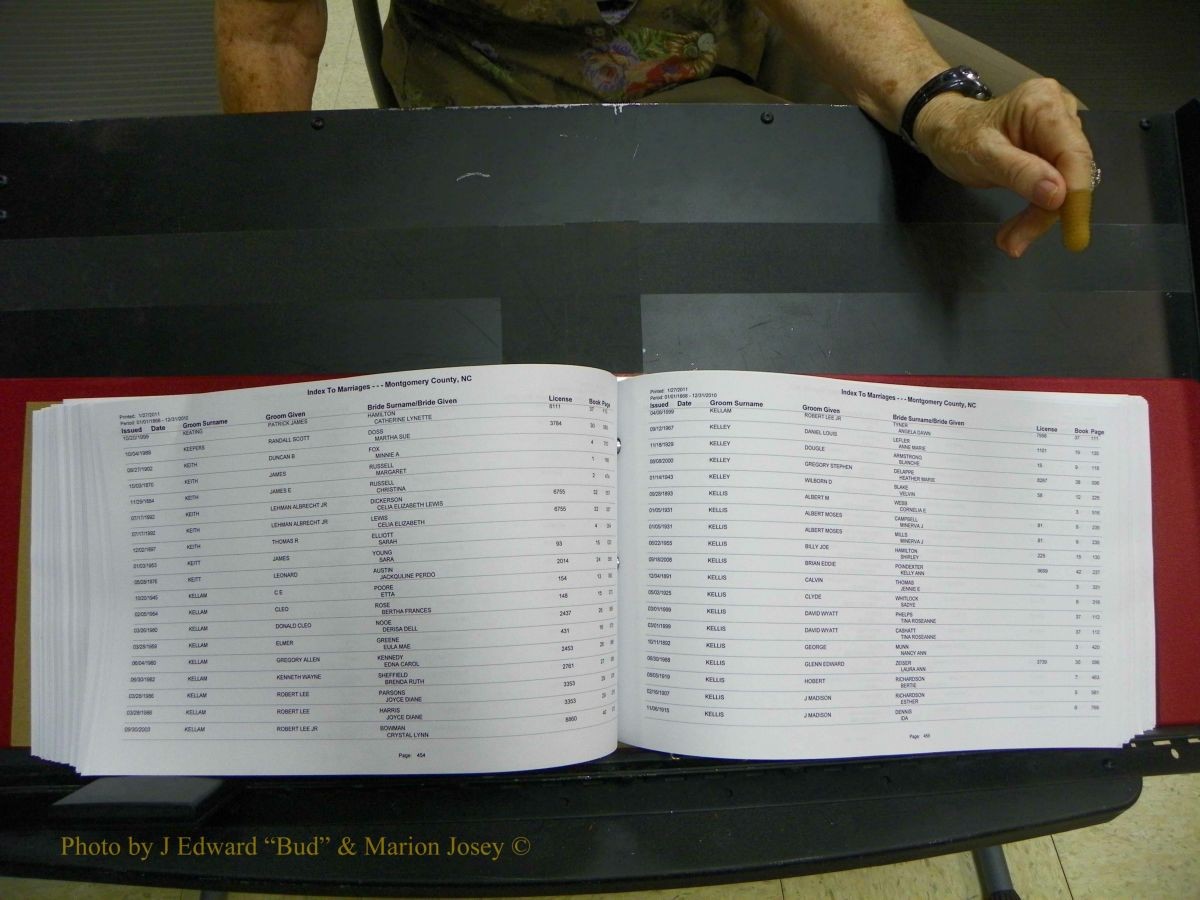 Index To Marriages - - - Montgomery County, NC
Printed: 1/27/2011
Period: 01/01/1868 - 12/31/2010
Issued Date Groom Surname Groom Given Bride Surname/Bride Given License Book Page
10/20/1999 KEATING PATRICK JAMES HAMILTON 8111 37
CATHERINE LYNETTE
10/04/1989 KEEPERS RANDALL SCOTT DOSS 3784 30
MARTHA SUE
09/27/1902 KEITH DUNCAN B FOX 4
MINNIE A
KEITH JAMES RUSSELL 1
MARGARET
11/29/1884 KEITH JAMES E RUSSELL 2
CHRISTINA
07/17/1992 KEITH LEHMAN ALBRECHT JR DICKERSON 6755 32
CELIA ELIZABETH LEWIS
07/17/1992 KEITH LEHMAN ALBRECHT JR LEWIS 6755 32
CELIA ELIZABETH
12/02/1897 KEITH THOMAS R ELLIOTT 4
SARAH
01/03/1953 KEITT JAMES YOUNG 93 15
SARA
KEITT LEONARD AUSTIN 2014 24
JACKQULINE PERDO
10/20/1945 KELLAM C E POORE 154 13
ETTA
02/05/1954 KELLAM CLEO ROSE 148 15
BERTHA FRANCES
03/26/1980 KELLAM DONALD CLEO NOOE 2437 26
DERISA DELL
03/28/1959 KELLAM ELMER GREENE 431 16
EULA MAE
06/04/1980 KELLAM GREGORY ALLEN KENNEDY 2453 26
EDNA CAROL
06/30/1982 KELLAM KENNETH WAYNE SHEFFIELD 2761 27
BRENDA RUTH
03/28/1986 KELLAM ROBERT LEE PARSONS 3353 29
JOYCE DIANE
03/28/1986 KELLAM ROBERT LEE HARRIS 3353 29
JOYCE DIANE
09/30/2003 KELLAM ROBERT LEE JR BOWMAN 8860 40
CRYSTAL LYNN
Page: 454
Index To Marriages - - - Montgomery County, NC
Printed: 1/27/2011
Period: 01/01/1868 - 12/31/2010
Issued Date Groom Surname Groom Given Bride Surname/Bride Given License Book Page
04/06/1999 KELLAM ROBERT LEE JR TYNER 7998 37 111
ANGELA DAWN
09/12/1967 KELLEY DANIEL LOUIS LEFLER 1101 19
ANNE MARIE
11/18/1929 KELLEY DOUGLE ARMSTRONG 15 9 118
BLANCHE
KELLEY GREGORY STEPHEN DELAPPE 8267 38
HEATHER MARIE
01/16/1943 KELLEY WILBORN D BLAKE 58 12
VELVIN
KELLIS ALBERT M WEBB 3 516
CORNELIA E
01/05/1931 KELLIS ALBERT MOSES CAMPBELL 81 235
MINERVA J
01/05/1931 KELLIS ALBERT MOSES MILLS 81 235
MINERVA J
KELLIS BILLY JOE HAMILTON 225 15 130
SHIRLEY
09/18/2006 KELLIS BRIAN EDDIE POINDEXTER 9659 42 237
KELLY ANN
12/04/1891 KELLIS CALVIN THOMAS 3 331
JENNIE E
05/02/1925 KELLIS CLYDE WHITLOCK 8 218
SADYE
03/01/1999 KELLIS DAVID WYATT PHELPS 37 112
TINA ROSEANNE
03/01/1999 KELLIS DAVID WYATT CASHATT 37 112
TINA ROSEANNE
10/11/1892 KELLIS GEORGE MUNN 3 420
NANCY ANN
06/30/1988 KELLIS GLENN EDWARD ZEISER 3739 30
LAURA ANN
KELLIS HOBERT RICHARDSON 7 463
BERTIE
02/16/1907 KELLIS J MADISON RICHARDSON 5 581
ESTHER
11/06/1915 KELLIS J MADISON DENNIS 6
IDA
Page: 455
Photo by J Edward “Bud” & Marion Josey ©